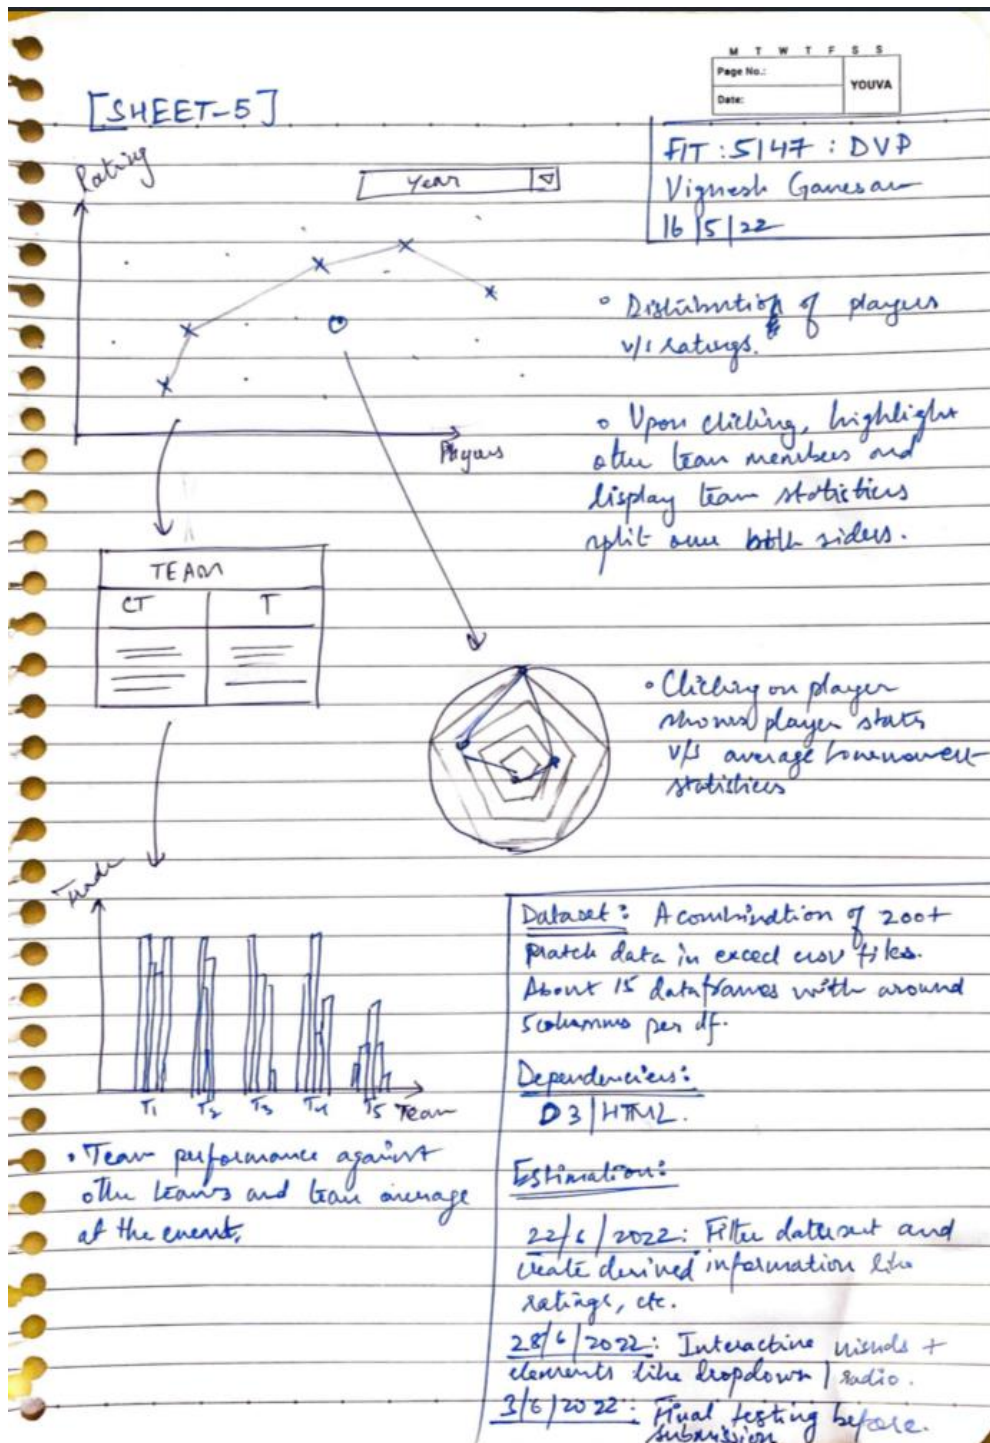 M T W T F S S
Page No.:
YOUVA
Date:
[SHEET-5]
FIT : 5147 : DVP
Vignesh Ganesan
16/5/22
Rating
Year
Players
• Distribution of players
v/s ratings.
• Upon clicking, highlight
other team members and
display team statistics
split over both sides.
TEAM
CT T
• Clicking on player
shows player stats
v/s average tournament
statistics
Team
T1 T2 T3 T4 T5
• Team performance against
other teams and team average
at the event.
Dataset: A combination of 200+
match data in excel csv files.
About 15 dataframes with around
5 columns per df.
Dependencies:
D3 | HTML.
Estimation:
22/6/2022: Filter dataset and
create derived information like
ratings, etc.
28/6/2022: Interactive visuals +
elements like dropdown | radio.
3/6/2022: Final testing before
submission